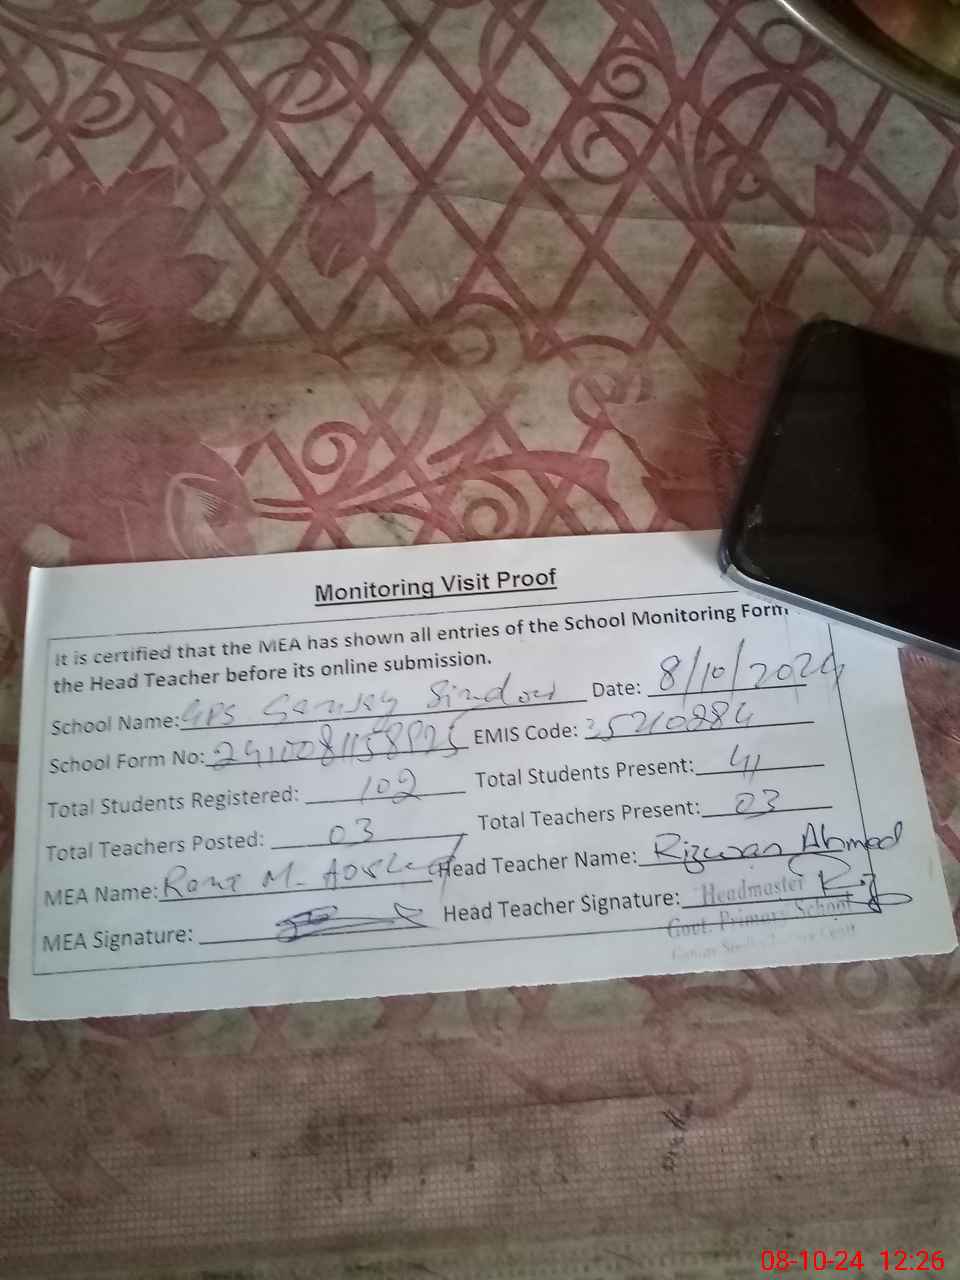 Monitoring Visit Proof
It is certified that the MEA has shown all entries of the School Monitoring Form
the Head Teacher before its online submission.
School Name: GPS Date: 8/10/2024
School Form No: EMIS Code: 35210884
Total Students Registered: 102 Total Students Present: 41
Total Teachers Posted: 03 Total Teachers Present: 03
MEA Name: Rana M. Head Teacher Name: Rizwan Ahmad
MEA Signature: Head Teacher Signature:
Headmaster
Govt. Primary School
08-10-24 12:26